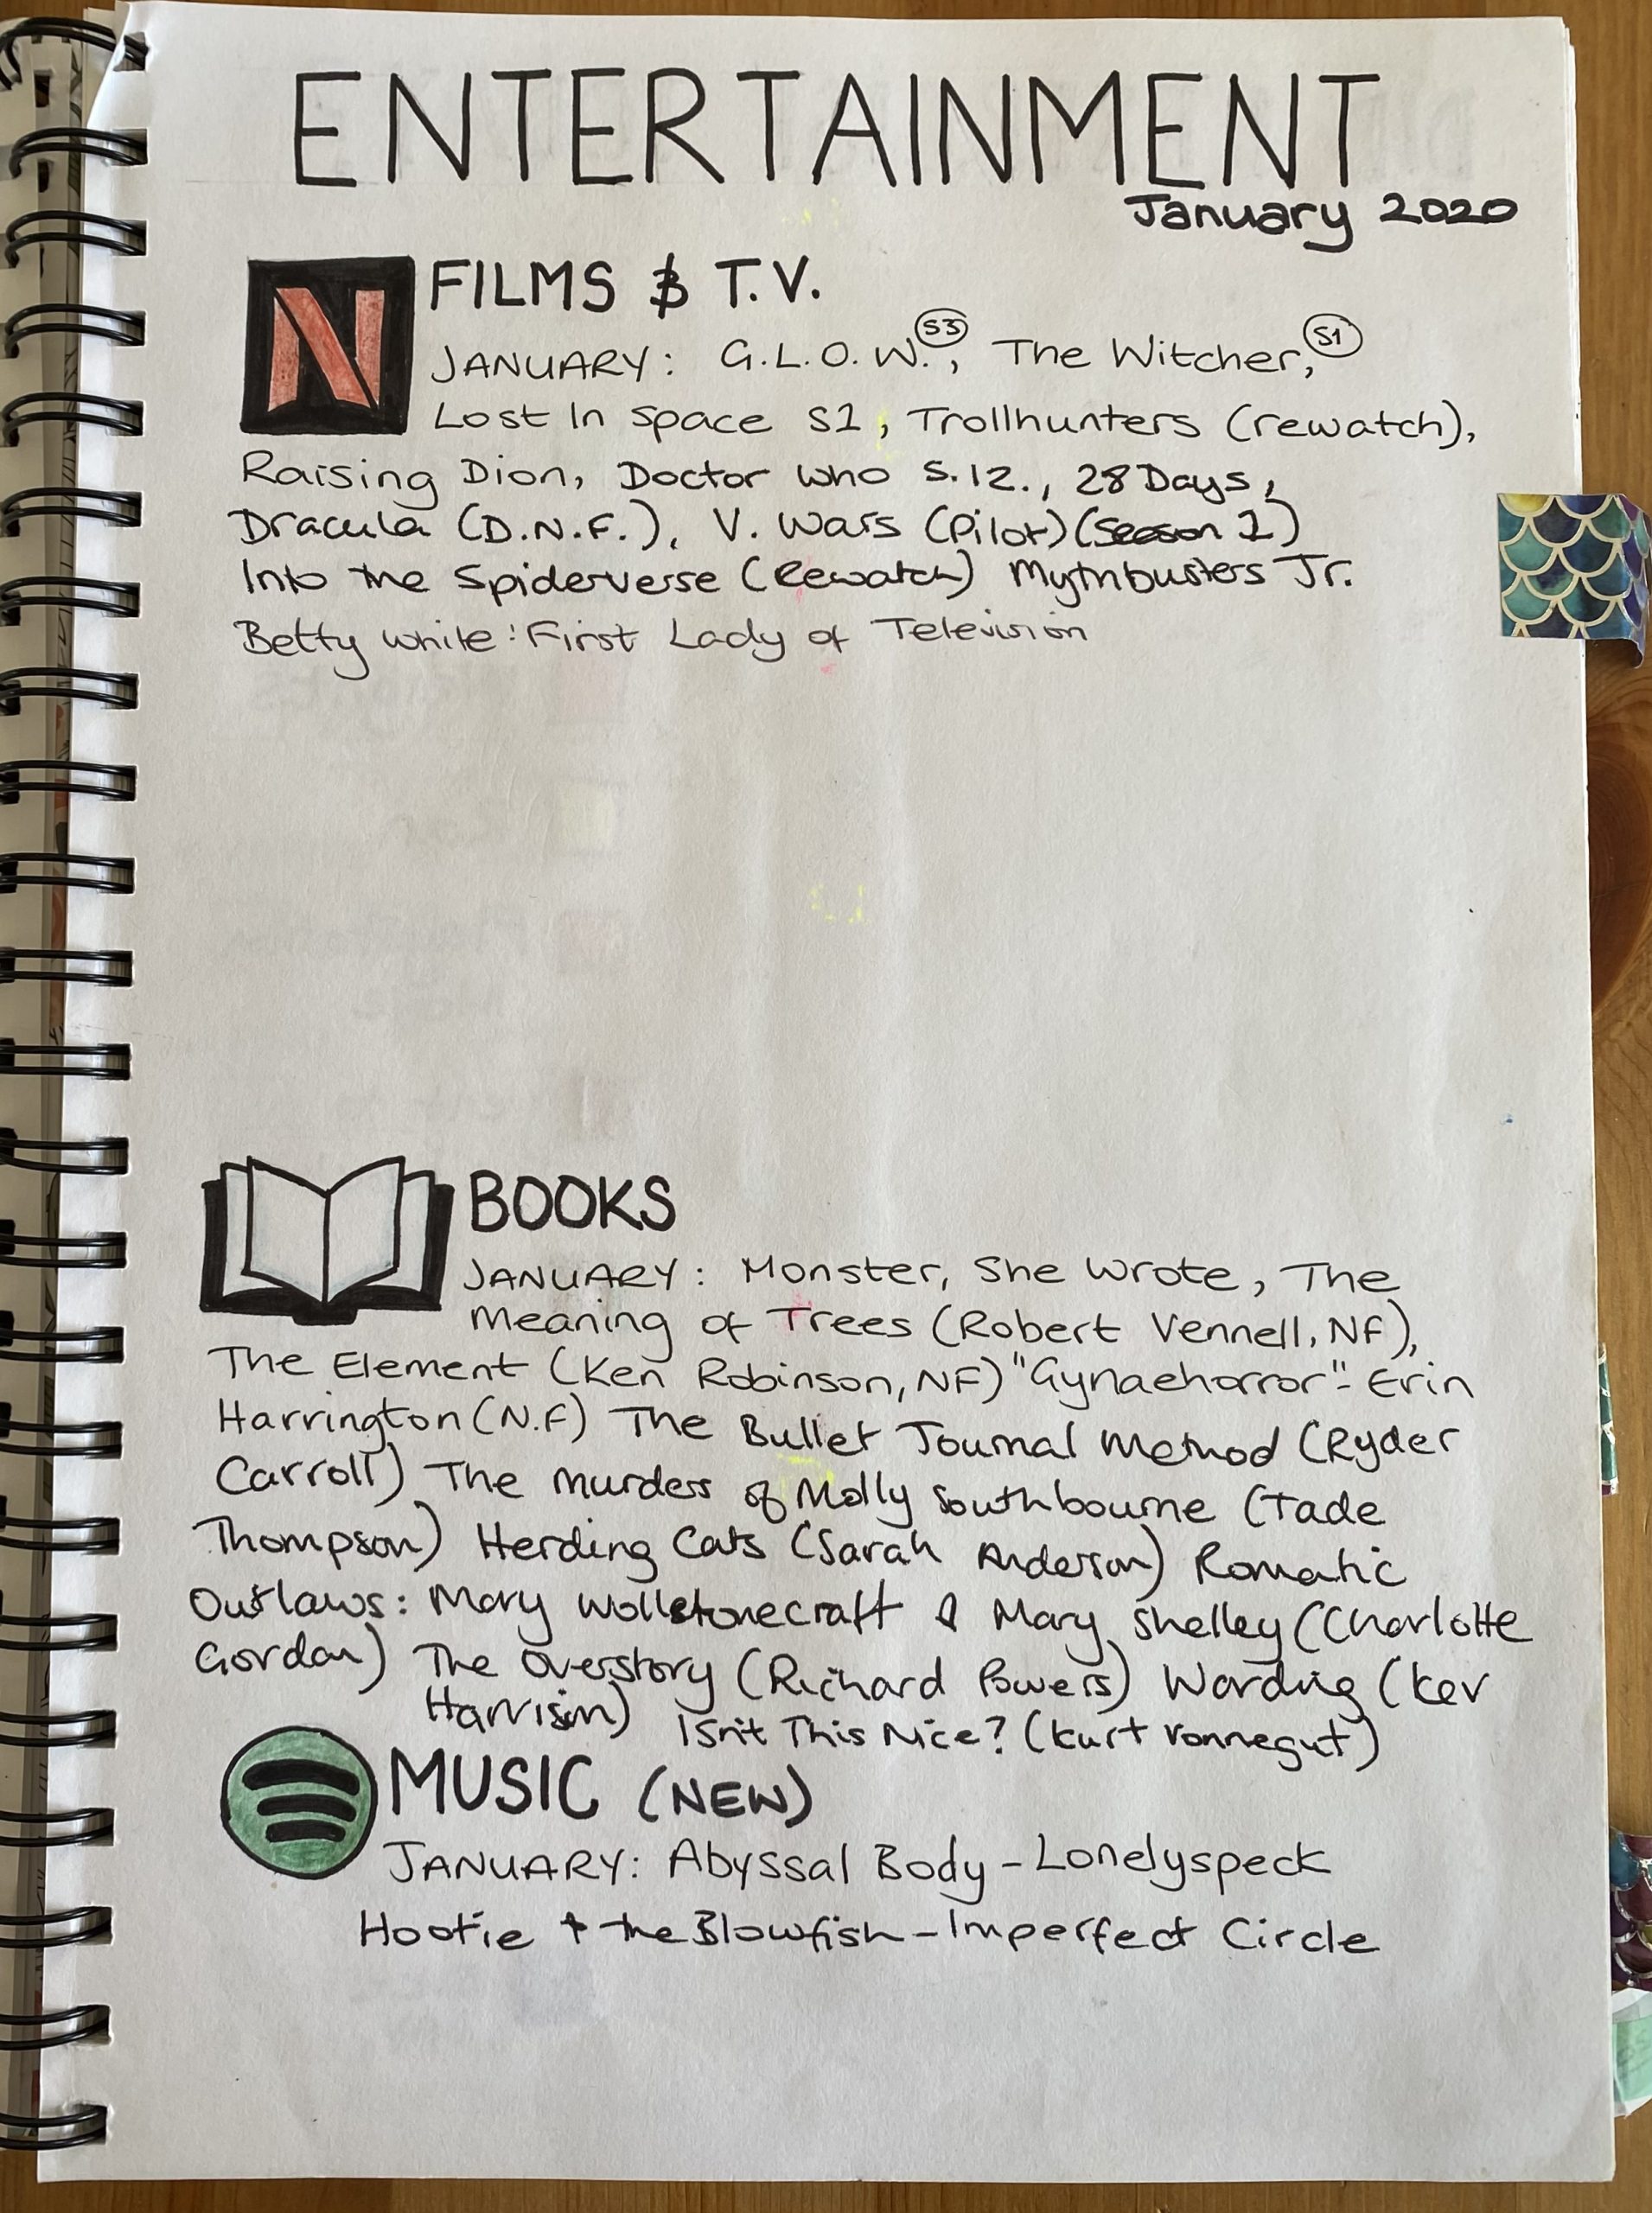 ENTERTAINMENT
January 2020
N
FILMS & T.V.
JANUARY: G.L.O.W. S3, The Witcher, S1
Lost In Space S1, Trollhunters (rewatch),
Raising Dion, Doctor Who S.12., 28 Days,
Dracula (D.N.F.), V. Wars (Pilot) (Season 1)
Into the Spiderverse (Rewatch) Mythbusters Jr.
Betty White: First Lady of Television
BOOKS
JANUARY: Monster, She Wrote, The
Meaning of Trees (Robert Vennell, NF),
The Element (Ken Robinson, NF) "Gynaehorror" - Erin
Harrington (N.F) The Bullet Journal Method (Ryder
Carroll) The Murders of Molly Southbourne (Tade
Thompson) Herding Cats (Sarah Anderson) Romatic
Outlaws: Mary Wollstonecraft & Mary Shelley (Charlotte
Gordon) The Overstory (Richard Powers) Warding (Kev
Harrison) Isn't This Nice? (Kurt Vonnegut)
MUSIC (NEW)
JANUARY: Abyssal Body - Lonelyspeck
Hootie + the Blowfish - Imperfect Circle